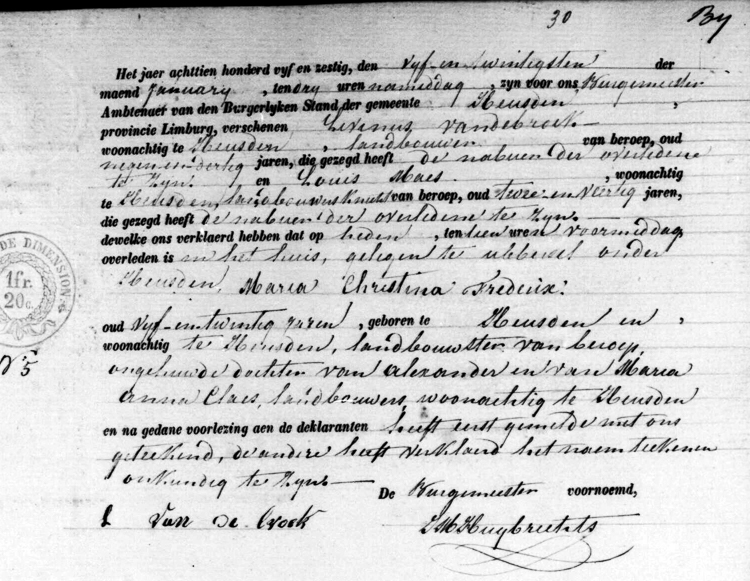 30
By
Het jaer achttien honderd vyf en zestig, den vyf-en-twintigsten der
maend January, ten dry uren namiddag, zyn voor ons Burgemeester
Ambtenaer van den Burgerlyken Stand der gemeente Heusden,
provincie Limburg, verschenen Livinus Vandebroek
woonachtig te Heusden, landbouwer van beroep, oud
negen en dertig jaren, die gezegd heeft de nabuer der overledene
te zyn. en Louis Maes, woonachtig
te Heusden, landbouwersknecht van beroep, oud twee en veertig jaren,
die gezegd heeft de nabuer der overledene te zyn.
dewelke ons verklaerd hebben dat op heden, ten tien uren voormiddag,
overleden is in het huis, gelegen te ubbersel onder
Heusden, Maria Christina Frederix.
oud vyf-en-twintig jaren, geboren te Heusden en,
woonachtig te Heusden, landbouwster van beroep,
ongehuwde dochter van Alexander en van Maria
Anna Claes, landbouwers, woonachtig te Heusden
en na gedane voorlezing aen de deklaranten heeft eerst gemelde met ons
geteekend, de andere heeft verklaerd het naemteekenen
onkundig te zyn.
De Burgemeester voornoemd,
L Van de broek
Huybrechts
DE DIMENSION
1fr.
20c.
N° 5